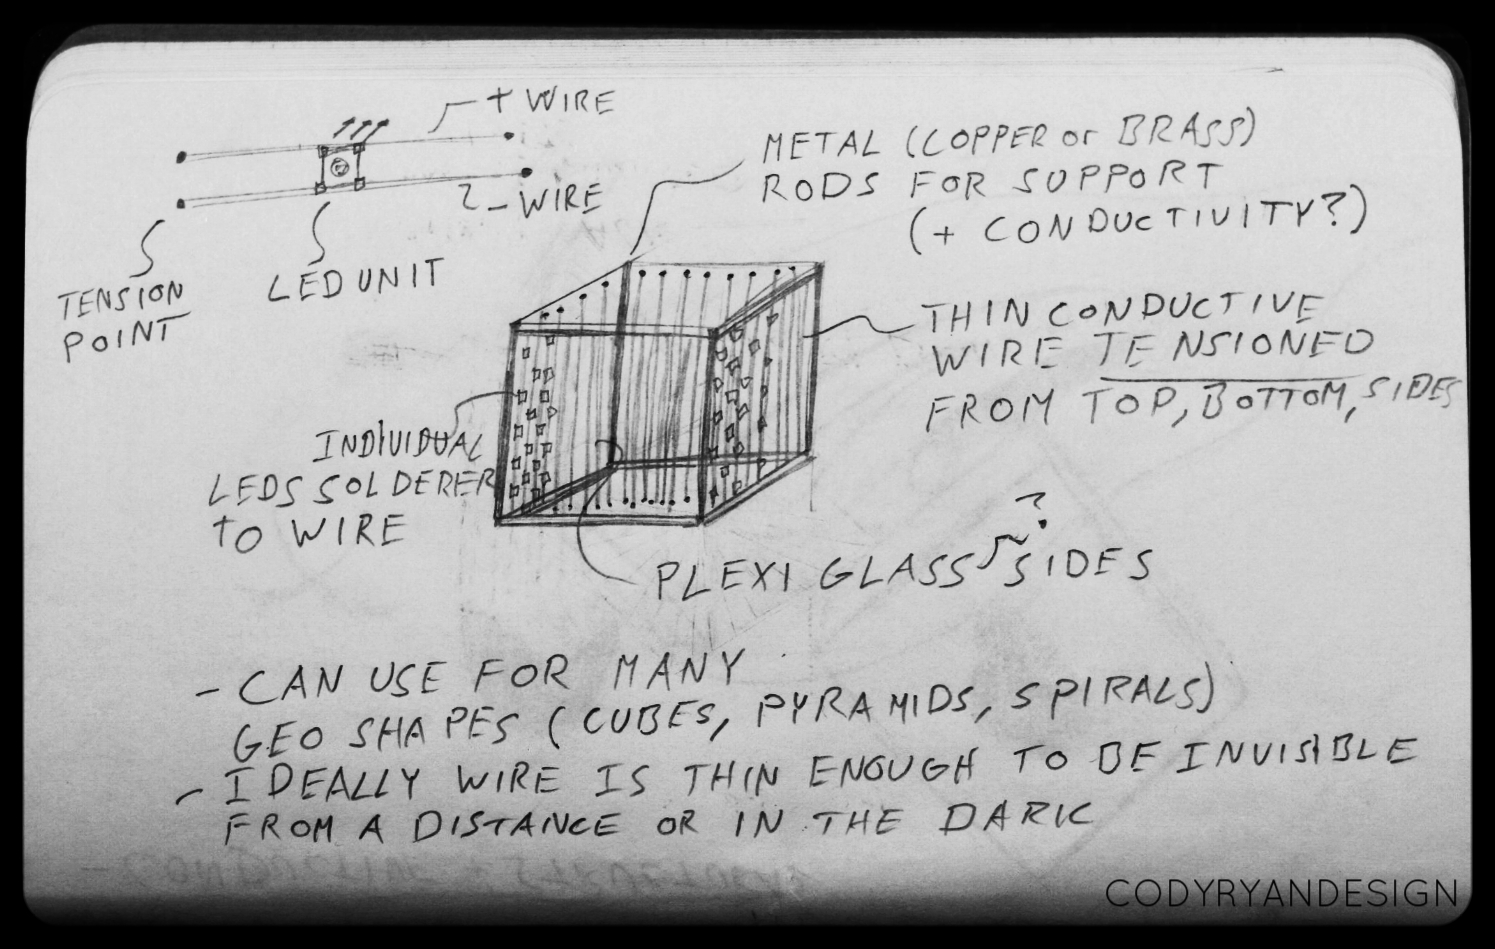 + WIRE
- WIRE
TENSION
POINT
LED UNIT
METAL (COPPER or BRASS)
RODS FOR SUPPORT
(+ CONDUCTIVITY?)
THIN CONDUCTIVE
WIRE TENSIONED
FROM TOP, BOTTOM, SIDES
INDIVIDUAL
LEDS SOLDERER
TO WIRE
?
PLEXI GLASS SIDES
- CAN USE FOR MANY
GEO SHAPES (CUBES, PYRAMIDS, SPIRALS)
- IDEALLY WIRE IS THIN ENOUGH TO BE INVISIBLE
FROM A DISTANCE OR IN THE DARK
CODYRYANDESIGN